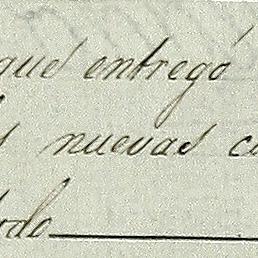 que entregó
s nuevas c
rdo